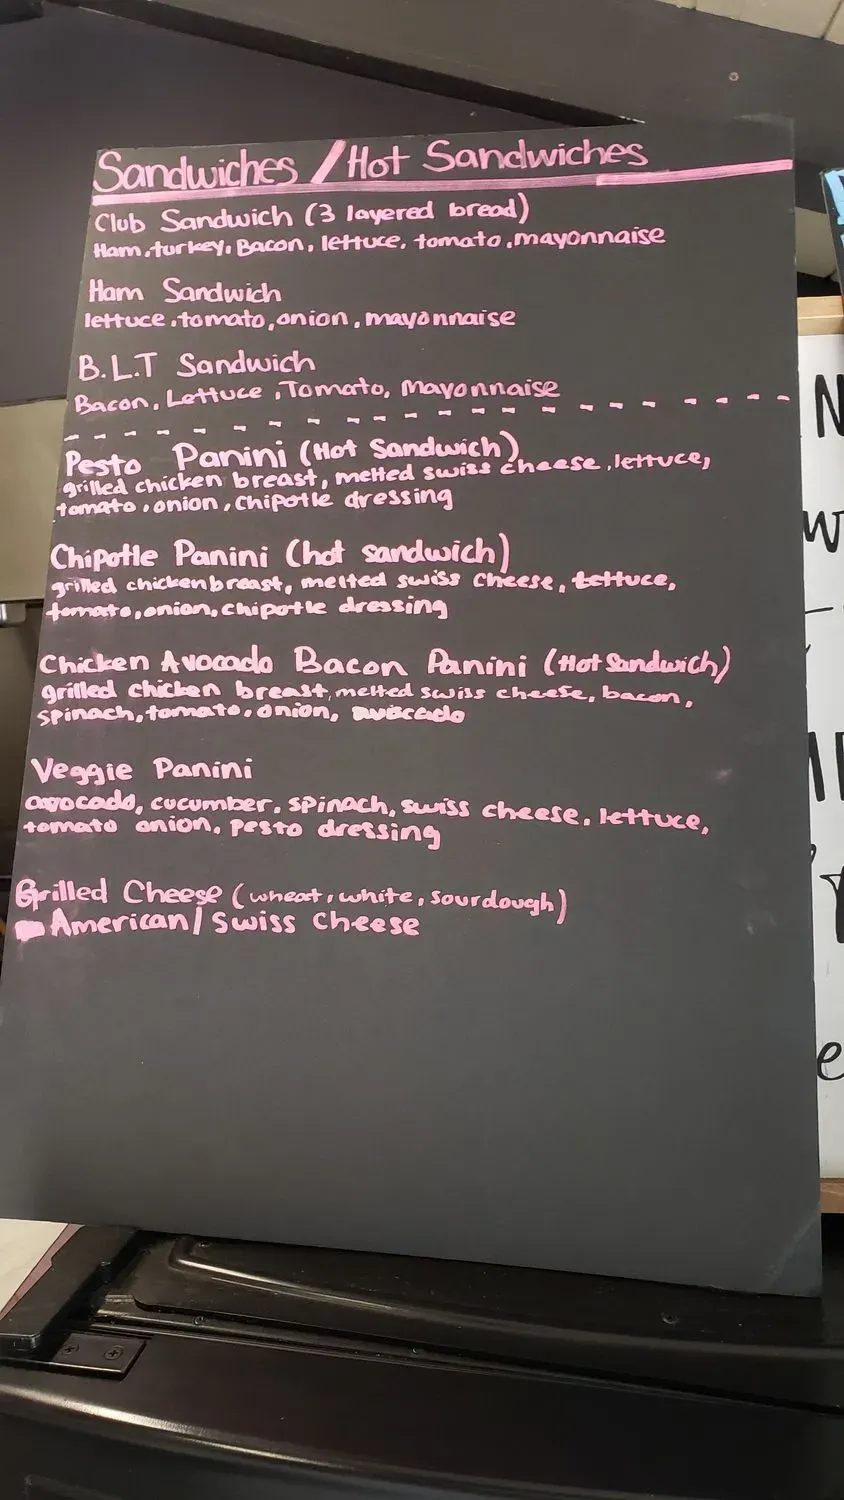 Sandwiches / Hot Sandwiches
Club Sandwich (3 layered bread)
Ham, turkey, Bacon, lettuce, tomato, mayonnaise
Ham Sandwich
lettuce, tomato, onion, mayonnaise
B.L.T Sandwich
Bacon, Lettuce, Tomato, Mayonnaise
Pesto Panini (Hot Sandwich)
grilled chicken breast, melted swiss cheese, lettuce,
tomato, onion, chipotle dressing
Chipotle Panini (hot sandwich)
grilled chicken breast, melted swiss cheese, lettuce,
tomato, onion, chipotle dressing
Chicken Avocado Bacon Panini (Hot Sandwich)
grilled chicken breast, melted swiss cheese, bacon,
spinach, tomato, onion, avocado
Veggie Panini
avocado, cucumber, spinach, swiss cheese, lettuce,
tomato onion, pesto dressing
Grilled Cheese (wheat, white, sourdough)
American/Swiss Cheese